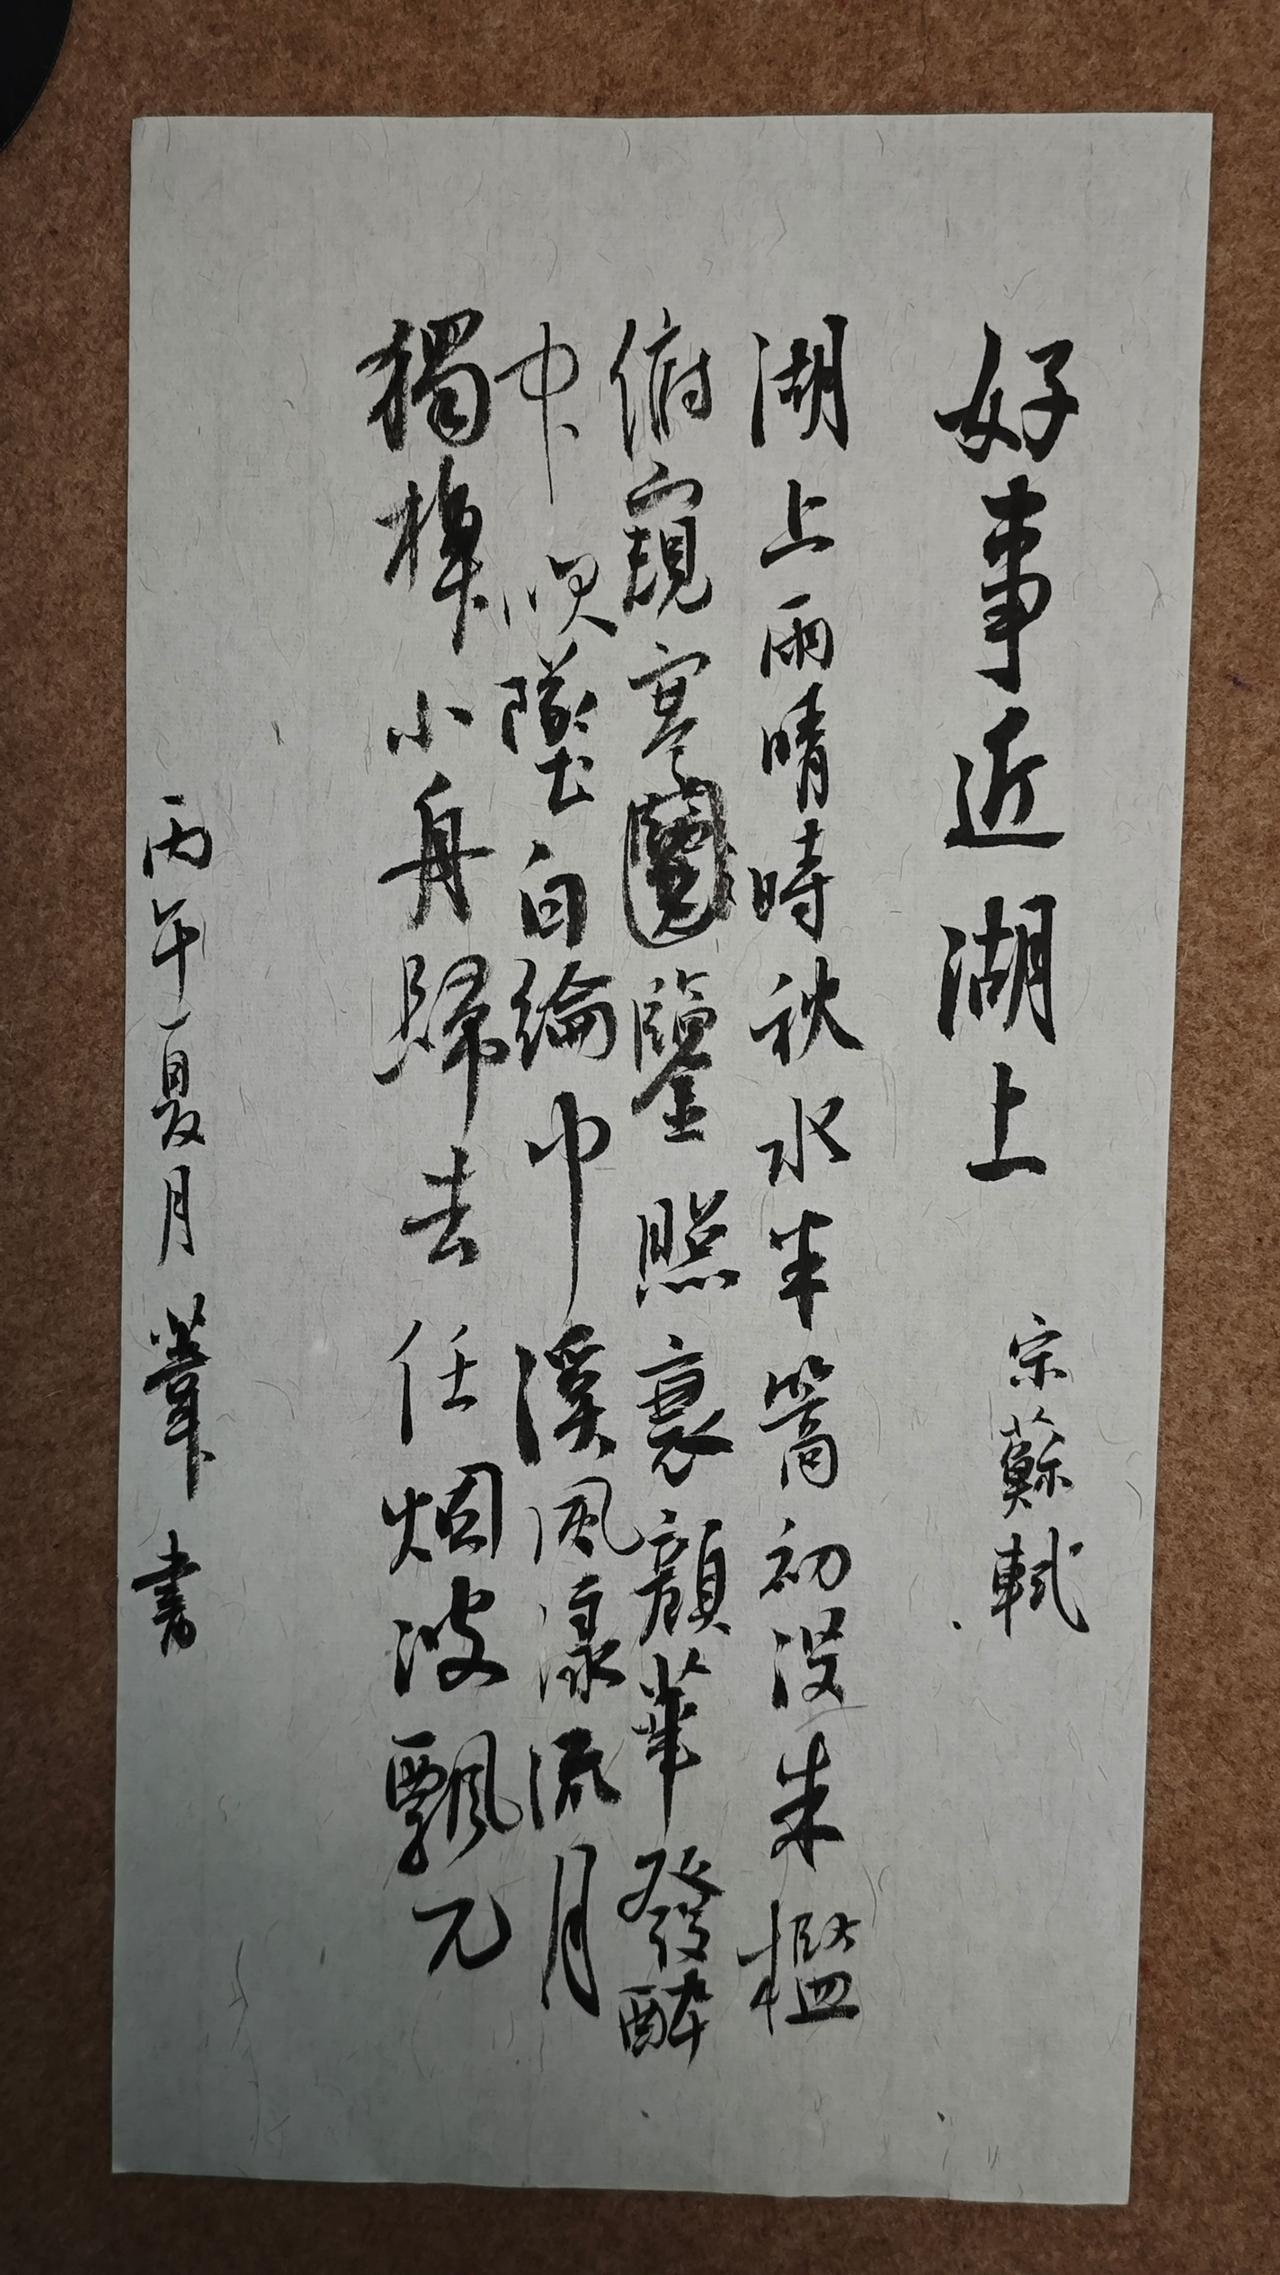 好事近湖上
宗蘇軾
湖上雨晴時秋水半篙初没朱檻
俯窺寒鑒照衰顏華發醉
中吹墜白綸巾溪風漾流月
獨棹小舟歸去任烟波飄兀
丙午夏月葦書